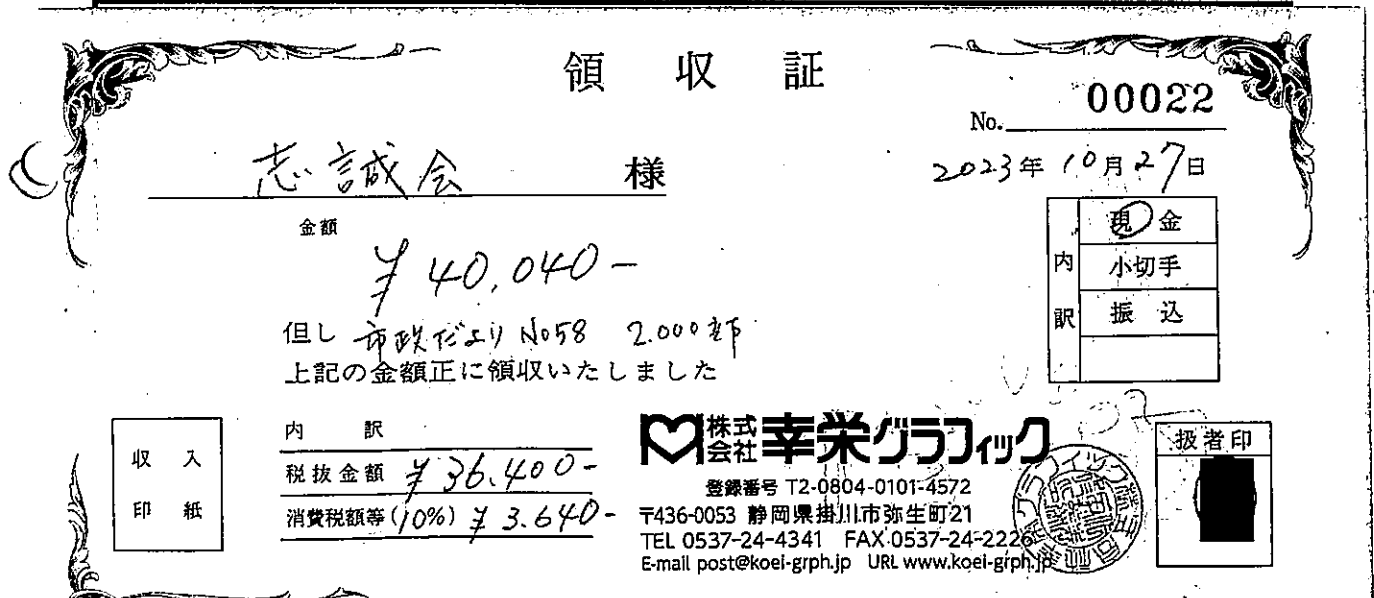 領収証
No. 00022
志誠会 様
2023年10月27日
金額
¥40,040-
但し 市政だより No58 2.000部
上記の金額正に領収いたしました
内訳
現金
小切手
振込
収入
印紙
内訳
税抜金額 ¥36.400-
消費税額等(10%) ¥3.640-
株式会社幸栄グラフィック
登録番号 T2-0804-0101-4572
〒436-0053 静岡県掛川市弥生町21
TEL 0537-24-4341 FAX 0537-24-2226
E-mail post@koei-grph.jp URL www.koei-grph.jp
扱者印